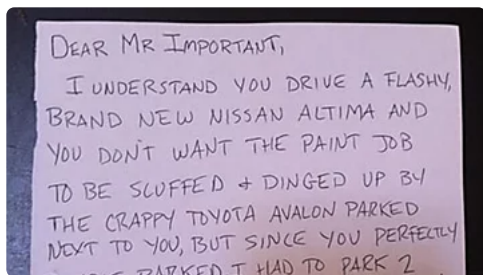 DEAR MR IMPORTANT,
I UNDERSTAND YOU DRIVE A FLASHY,
BRAND NEW NISSAN ALTIMA AND
YOU DON'T WANT THE PAINT JOB
TO BE SCUFFED & DINGED UP BY
THE CRAPPY TOYOTA AVALON PARKED
NEXT TO YOU, BUT SINCE YOU PERFECTLY
PARKED I HAD TO PARK 2